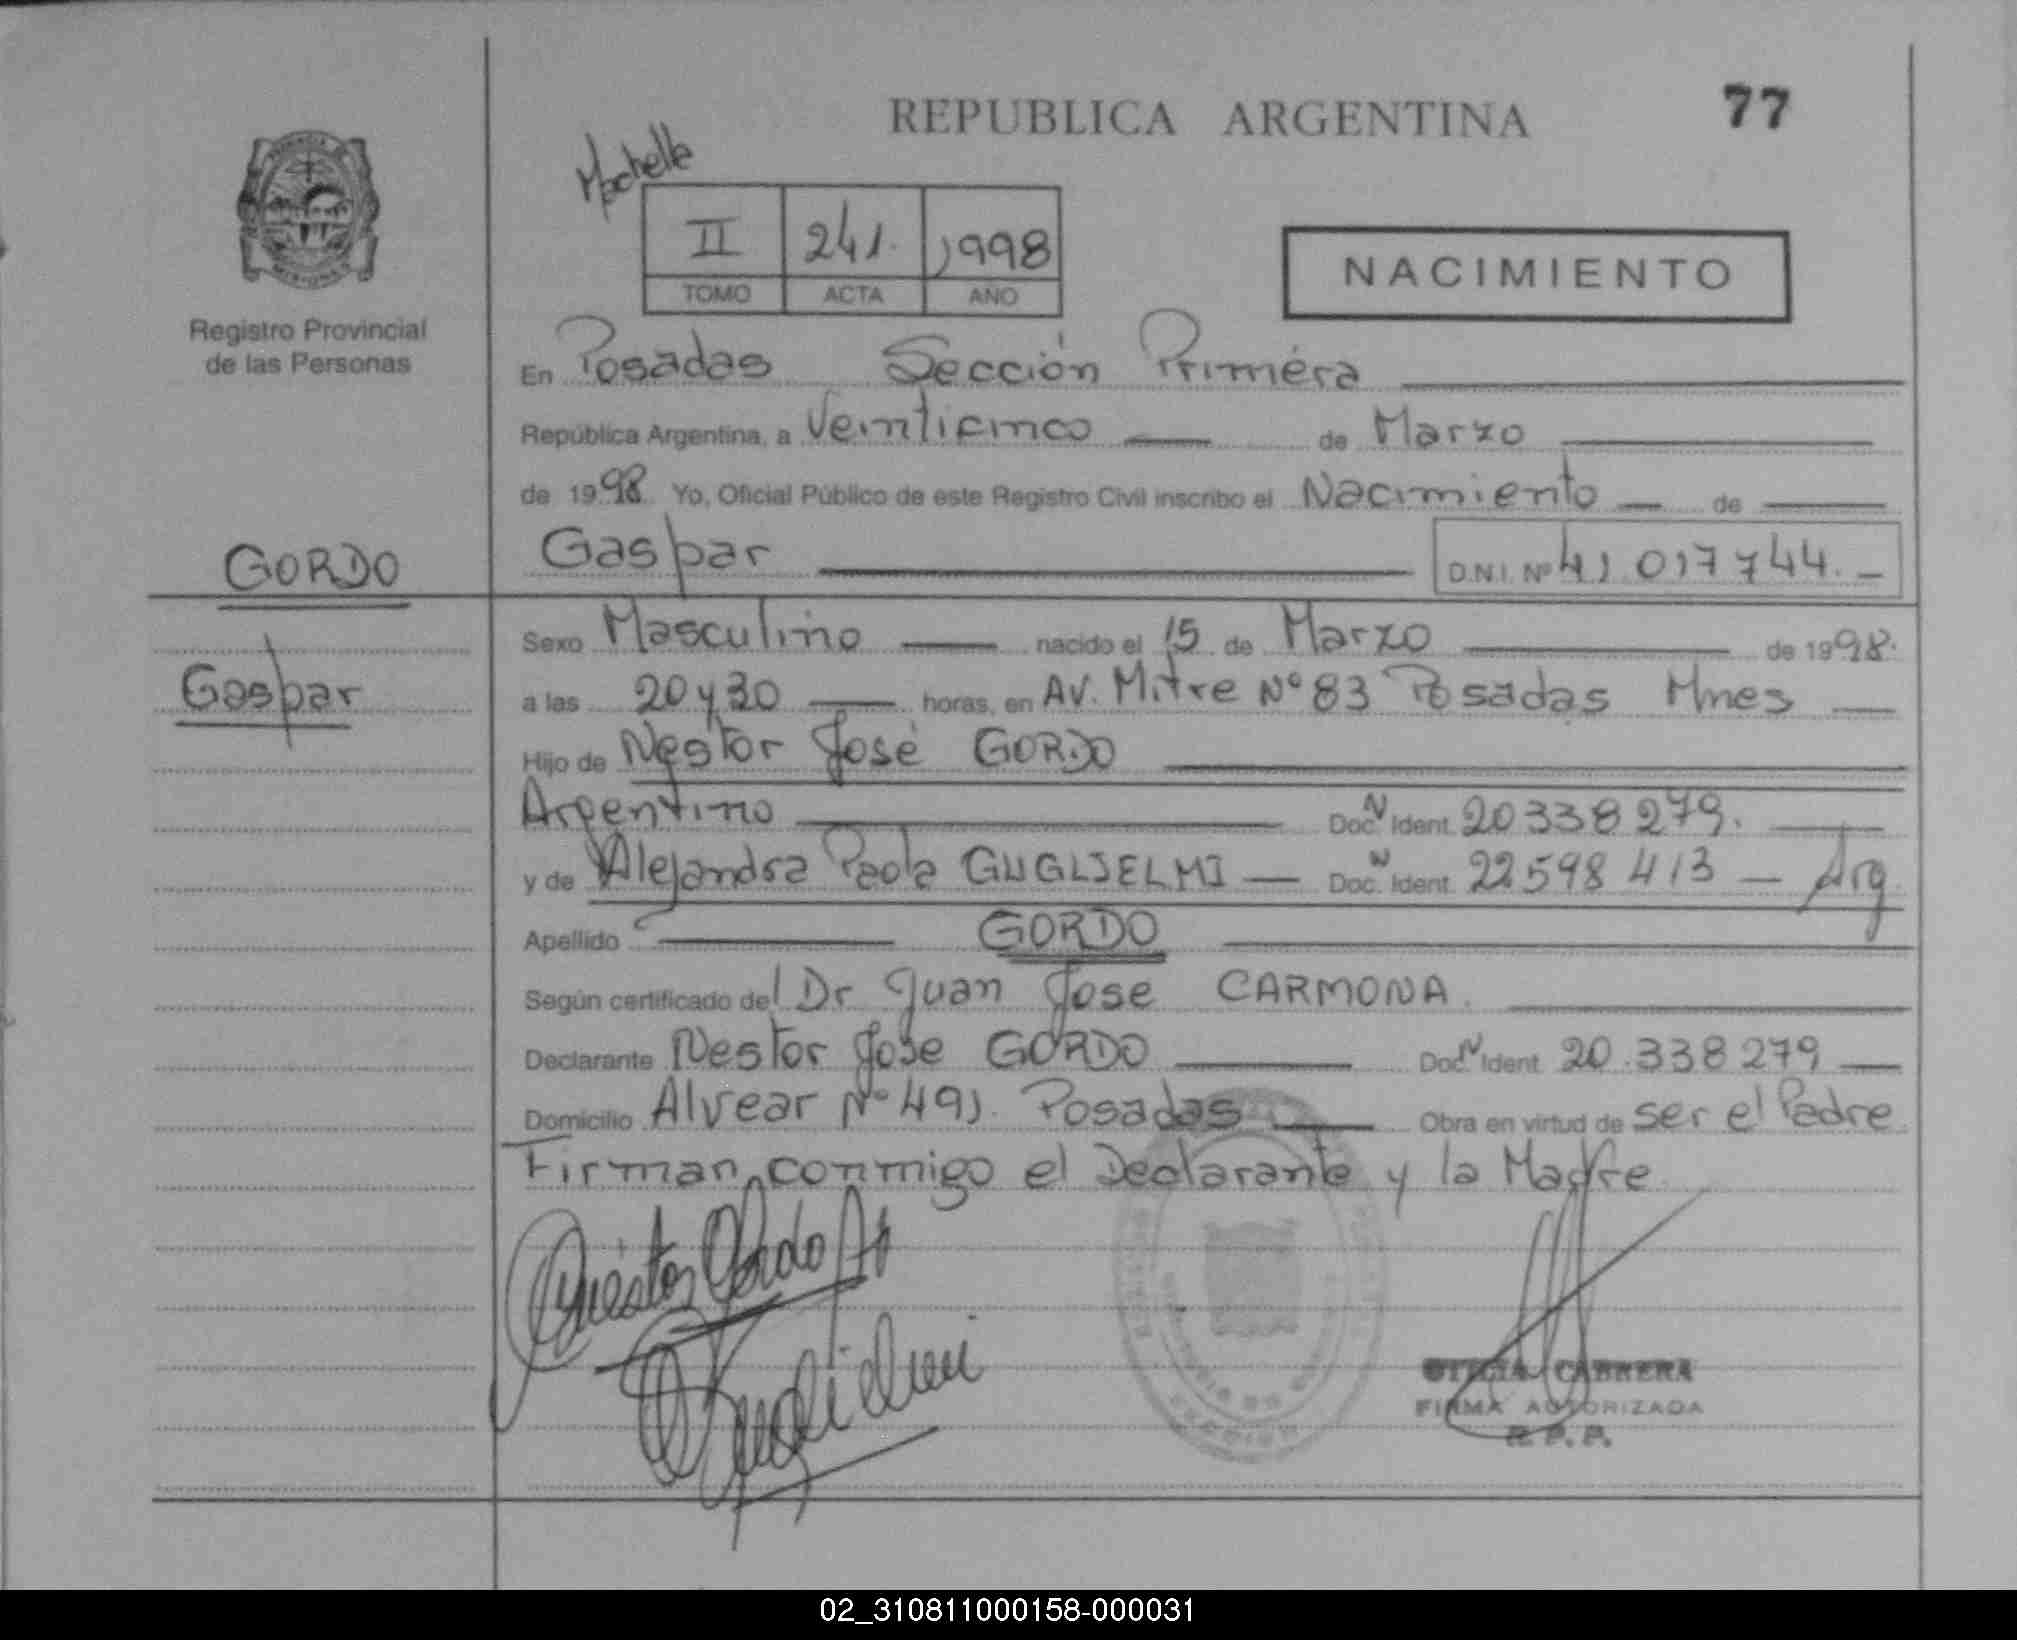 REPUBLICA ARGENTINA
77
II 241. 1998
TOMO ACTA AÑO
NACIMIENTO
Registro Provincial
de las Personas
En Posadas Sección Primera
República Argentina, a Veinticinco de Marzo
de 1998 Yo, Oficial Público de este Registro Civil inscribo el Nacimiento de
GORDO
Gaspar
D.N.I. Nº 41 017 744.
Gaspar
Sexo Masculino nacido el 15 de Marzo de 1998.
a las 20 y 30 horas, en AV. Mitre Nº 83 Posadas Mnes
Hijo de Nestor José GORDO
Argentino Doc. N Ident. 20338279.
y de Alejandra Paola GUGLIELMI Doc. N Ident. 22598413 Arg
Apellido GORDO
Según certificado del Dr Juan Jose CARMONA.
Declarante Nestor Jose GORDO Doc. N Ident. 20.338279
Domicilio Alvear Nº 491. Posadas Obra en virtud de ser el Padre
Firman conmigo el Declarante y la Madre
CABRERA
FIRMA AUTORIZADA
R.P.P.
02_310811000158-000031